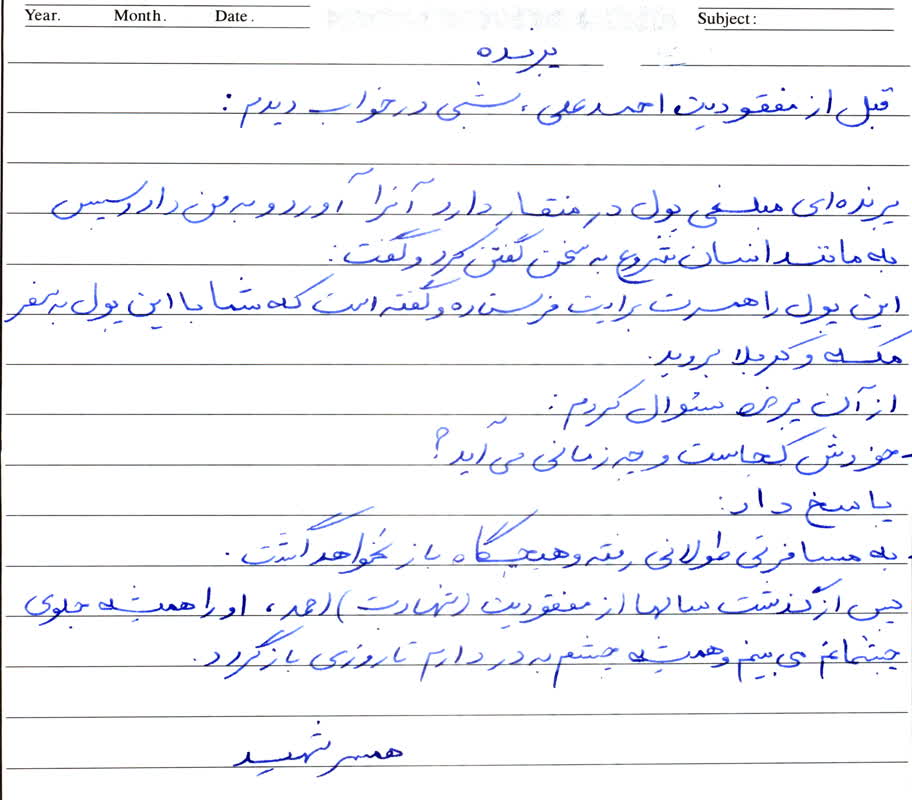 Year. Month. Date. Subject:
پرنده
قبل از مفقودیت احمد علی، شبی در خواب دیدم:
پرنده‌ای مبلغی پول در منقار دارد آنرا آورد و به من داد و سپس
به مانند انسان شروع به سخن گفتن کرد و گفت:
این پول را همسرت برایت فرستاده و گفته است که شما با این پول به سفر
مکه و کربلا بروید.
از آن پرنده سئوال کردم:
- خودش کجاست و چه زمانی می‌آید؟
پاسخ داد:
- به مسافرتی طولانی رفته و هیچگاه باز نخواهد گشت.
پس از گذشت سالها از مفقودیت (شهادت) احمد، او را همیشه جلوی
چشمانم می بینم و همیشه چشم به در دارم تا روزی بازگردد.
همسر شهید